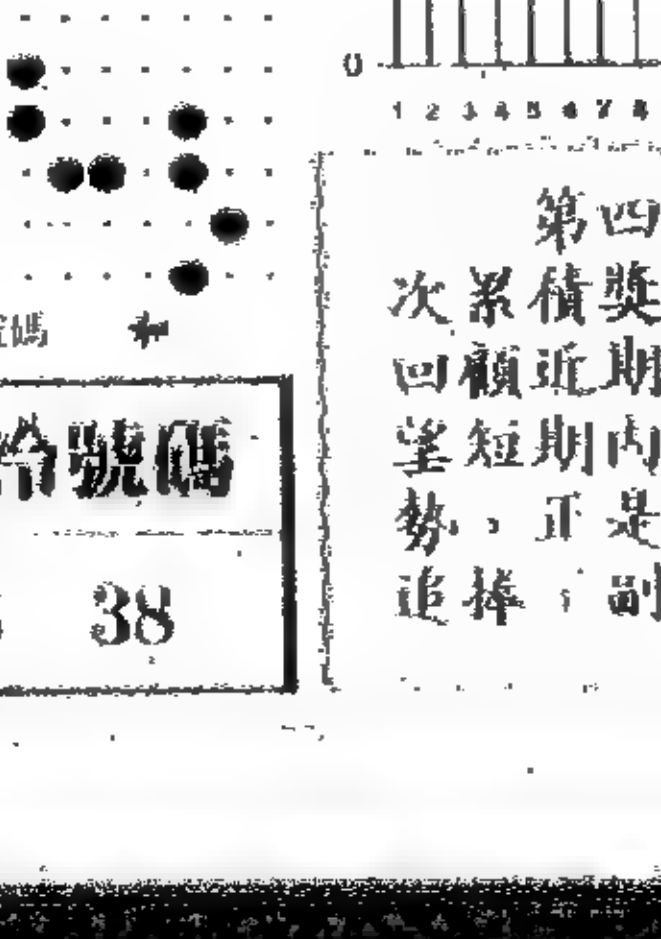 0
1 2 3 4 5 6 7 8
號碼
冷號碼
38
第四
次累積獎
回顧近期
望短期內
勢，正是
追捧，副